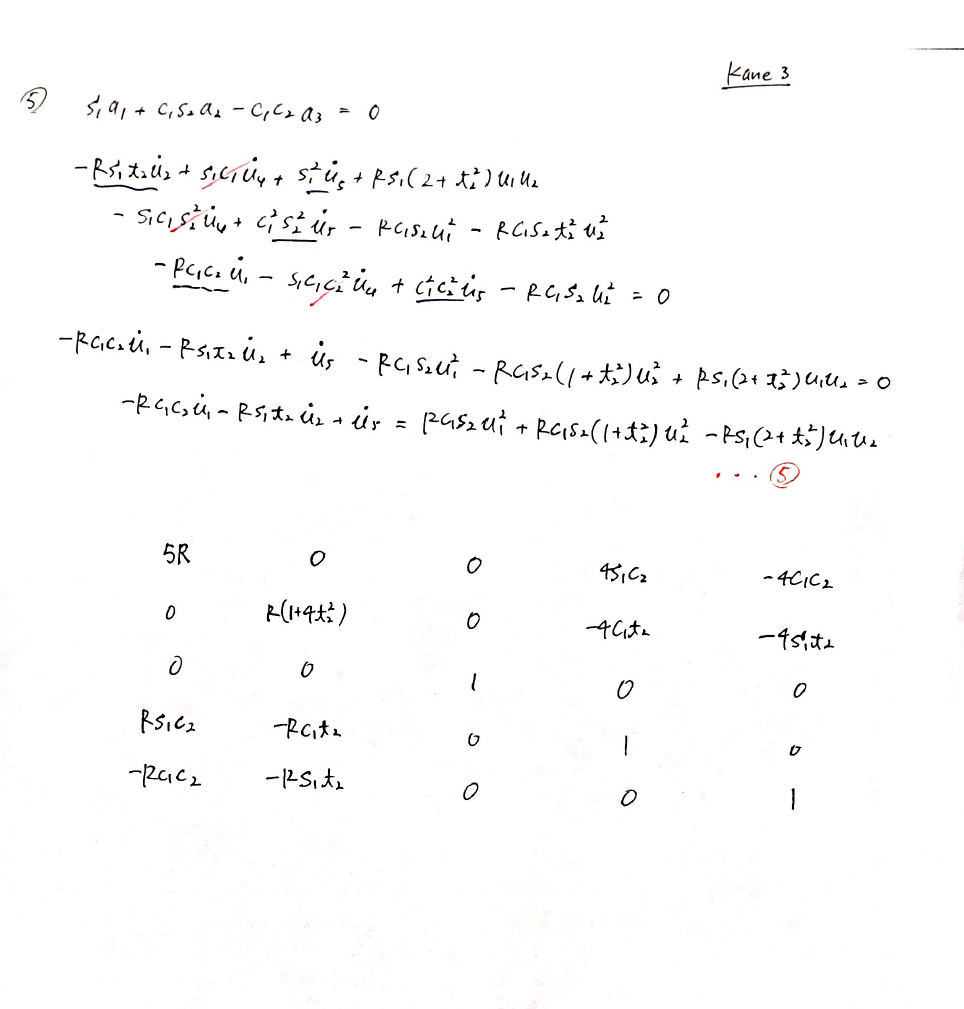 Kane 3
⑤ s₁a₁ + c₁s₂a₂ − c₁c₂a₃ = 0
−Rs₁t₂u̇₂ + s₁c₁u̇₄ + s₁²u̇₅ + Rs₁(2 + t₂²)u₁u₂
− s₁c₁s₂²u̇₄ + c₁²s₂²u̇₅ − Rc₁s₂u₁² − Rc₁s₂t₂²u₂²
− Rc₁c₂u̇₁ − s₁c₁c₂²u̇₄ + c₁²c₂²u̇₅ − Rc₁s₂u₂² = 0
−Rc₁c₂u̇₁ − Rs₁t₂u̇₂ + u̇₅ − Rc₁s₂u₁² − Rc₁s₂(1 + t₂²)u₂² + Rs₁(2 + t₂²)u₁u₂ = 0
−Rc₁c₂u̇₁ − Rs₁t₂u̇₂ + u̇₅ = Rc₁s₂u₁² + Rc₁s₂(1 + t₂²)u₂² − Rs₁(2 + t₂²)u₁u₂
... ⑤
5R 0 0 4s₁c₂ −4c₁c₂
0 R(1+4t₂²) 0 −4c₁t₂ −4s₁t₂
0 0 1 0 0
Rs₁c₂ −Rc₁t₂ 0 1 0
−Rc₁c₂ −Rs₁t₂ 0 0 1